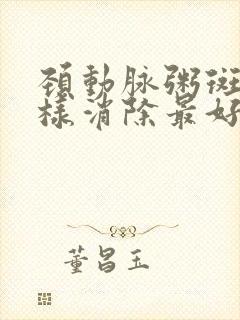 頸動脉粥斑
樣消除最好
董昌玉